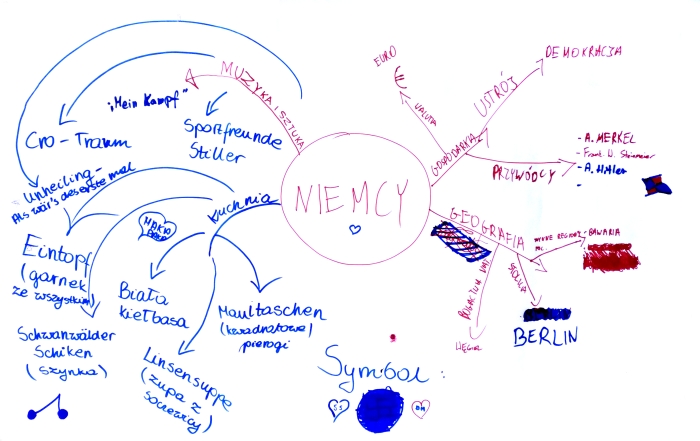 NIEMCY
MUZYKA i SZTUKA
„Mein Kampf"
Sportfreunde
Stiller
Cro - Traum
Unheilig -
Als wär's das erste mal
Kuchnia
Eintopf
(garnek
ze wszystkim)
Schwarzwälder
Schiken
(szynka)
Biała
kiełbasa
Linsensuppe
(zupa z
soczewicy)
Maultaschen
(kwadratowe)
pierogi
GOSPODARKA
WALUTA
EURO
€
USTRÓJ
DEMOKRACJA
PRZYWÓDCY
- A. MERKEL
- Frank W. Steinmeier
- A. Hitler
-
GEOGRAFIA
BAWARIA
STOLICA
BERLIN
WĘGIEL
Symbol: